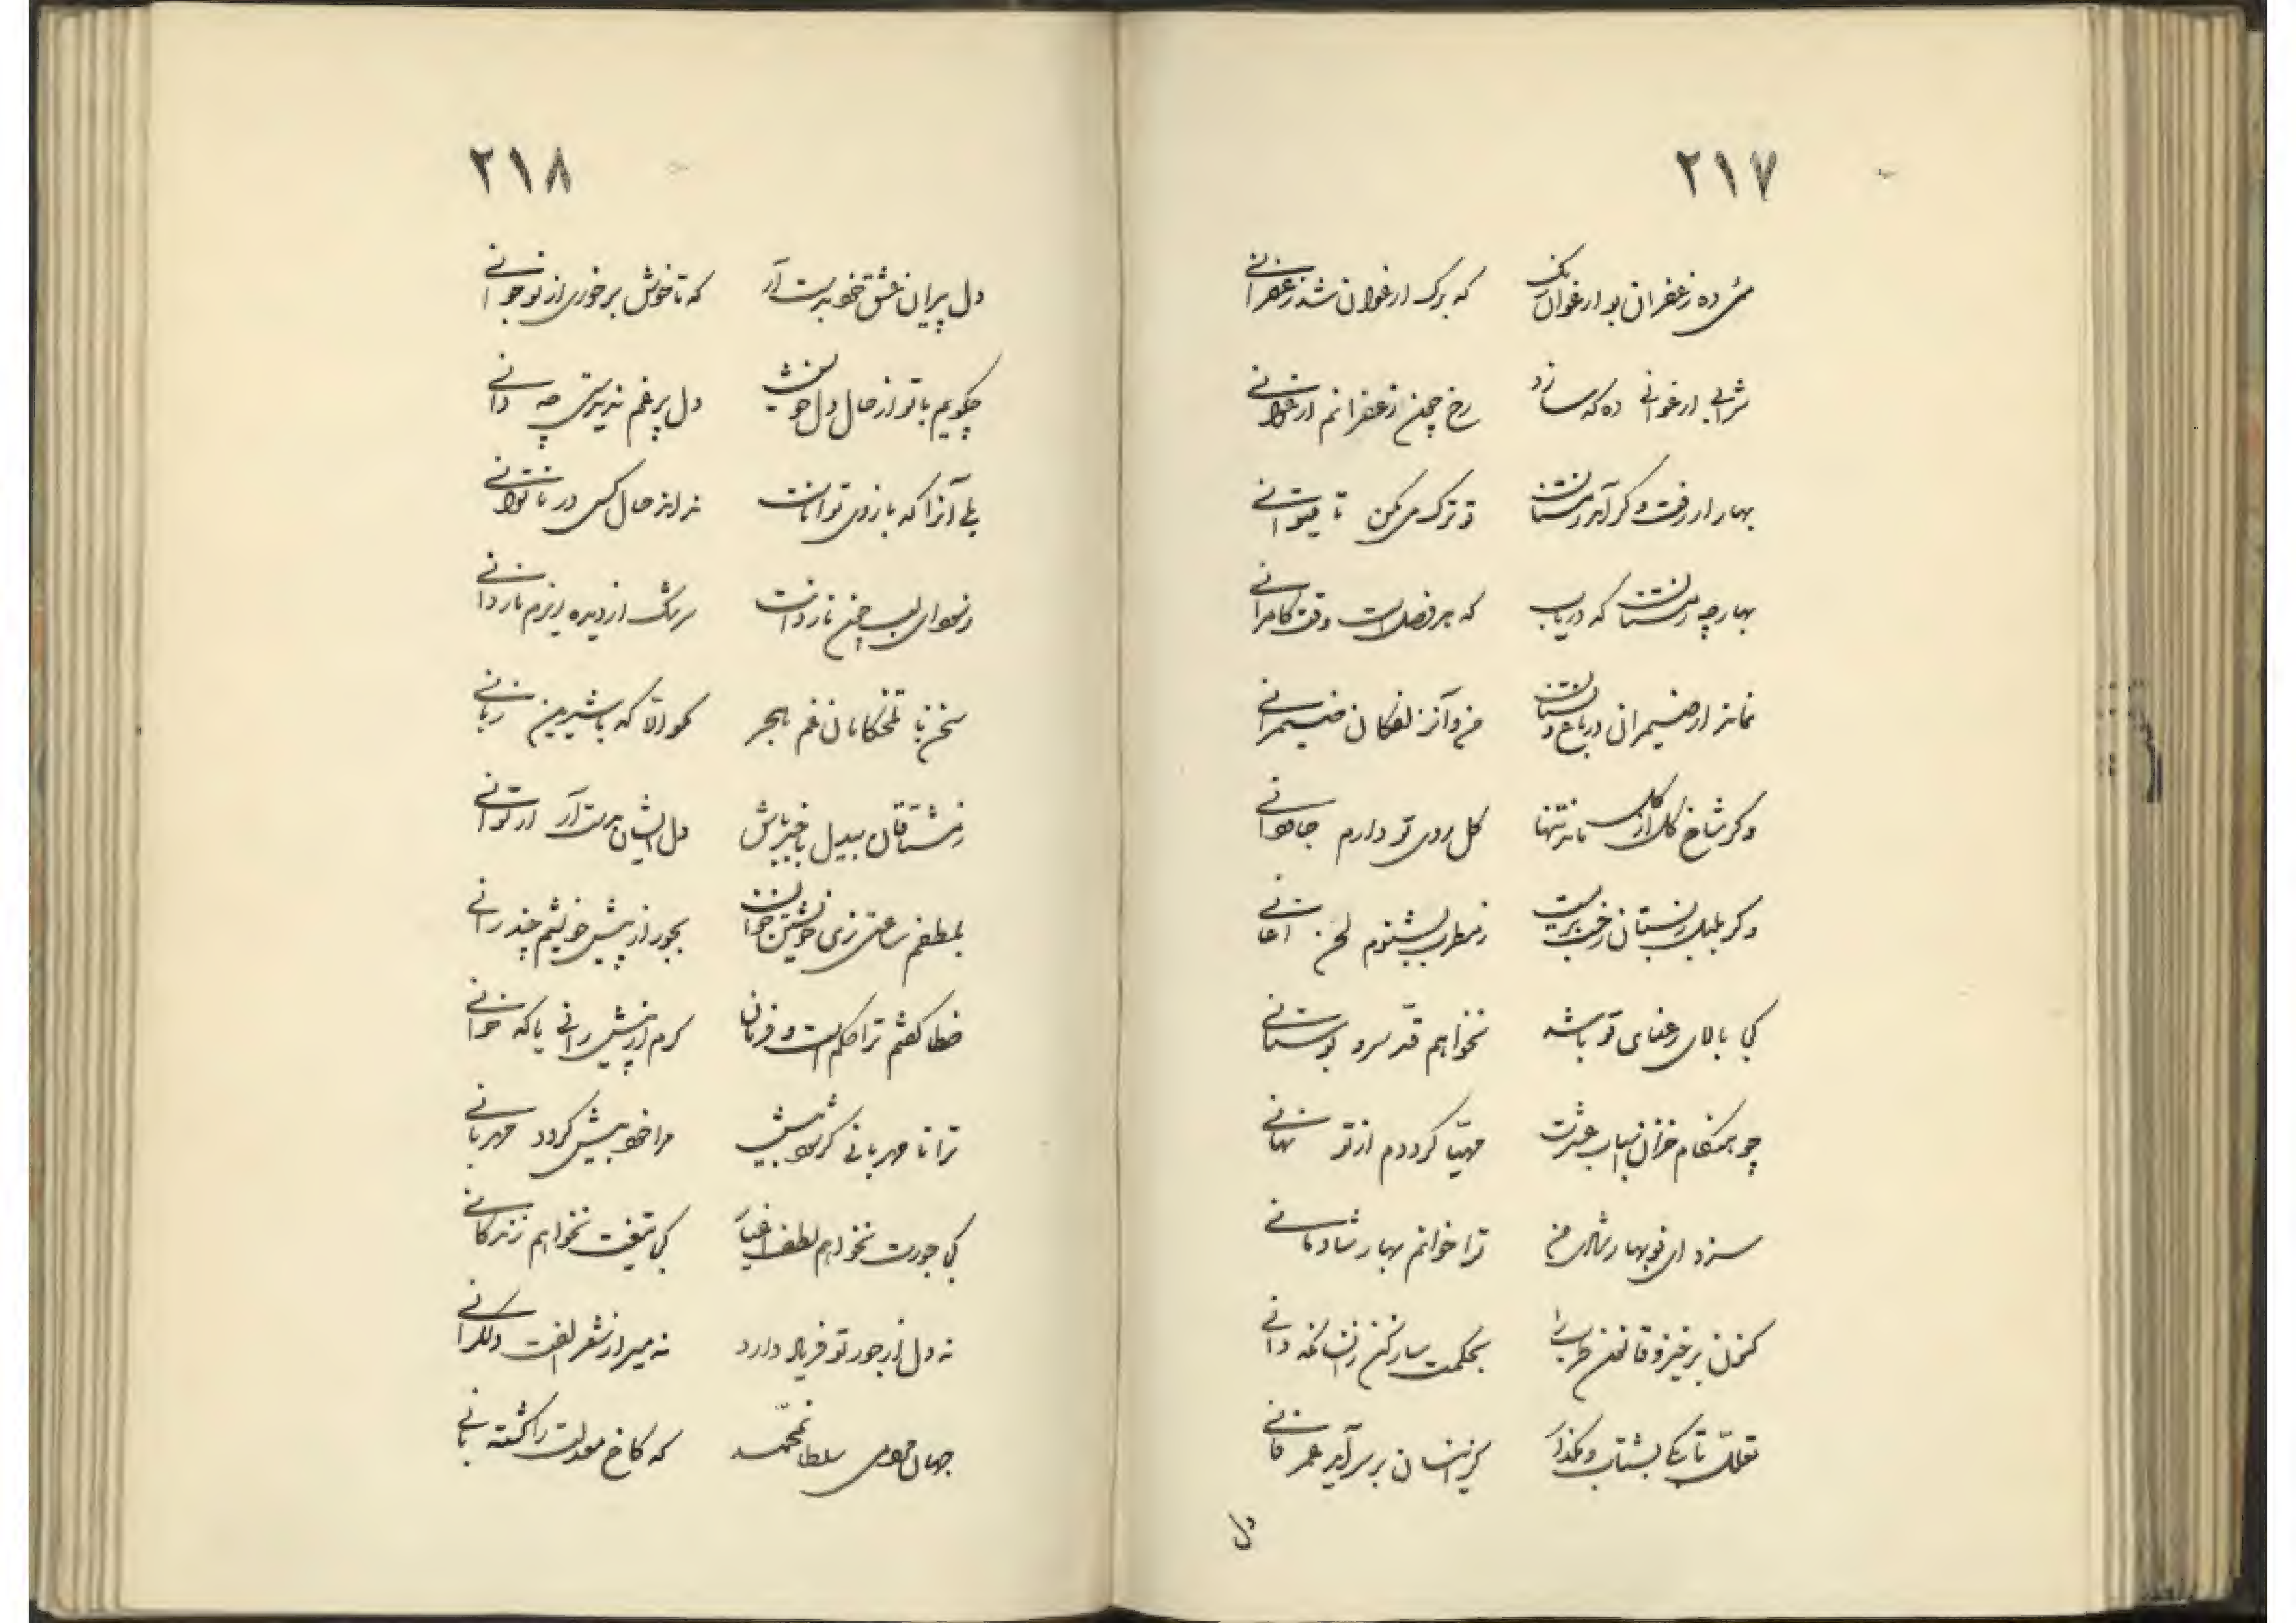 ۲۱۷
می ده زعفران بو ارغوان رنگ که برک ارغوان شد زعفرانی
شراب ارغوانی ده که سازد رخ چون زعفرانم ارغوانی
بهار ار رفت و کر آمد زمستان تو ترک می مکن تا میتوانی
بهار چه زمستان که دریاب که هر فصل است وقت کامرانی
نماند ار ضیمران در باغ و بستان من و آن زلفکان ضیمرانی
وکر شاخ کل از کل ماند تنها کل روی تو دارم جاودانی
وکر بلبل ز بستان رخت بربست ز مطرب بشنوم لحن اغانی
کی بالای رعنای تو باشد نخواهم قد سرو بوستانی
چو هنکام خزان اسباب عشرت مهیا کرددم از تو نهانی
سزد ای نوبهار شادی من ترا خوانم بهار شادمانی
کنون برخیز و قانون طرب را بحکمت ساز کن زانسان که دانی
تعلل تا بکی بشتاب ومکذار کزینسان بر سر آید عمر فانی
دل
۲۱۸
دل پیران عشق خود بدست آر که تا خوش بر خوری از نوجوانی
چکویم با تو از حال دل خویش دل پر غم ندیدستی چه دانی
بلی آنرا که بازوی تواناست نداند حال کس در ناتوانی
ز سودای لب چون ناردانت سرشک از دیده ریزم ناردانی
سخن با تلخکامان غم هجر نکو دلا که با شیرین زبانی
ز مشتاقان بیدل باخبر باش دل ایشان بدست آر ار توانی
بلطفم ساعتی زی خویشتن خوان بجور از پیش خویشم چند رانی
خطا کفتم ترا حکم است و فرمان کرم از پیش رانی یا که خوانی
ترا نامهربانی کر شود بیش مرا خود بیش کردد مهربانی
کی جورت نخواهم لطف اغیار کی تیغت نخواهم زندکانی
نه دل از جور تو فریاد دارد نه میر از شعر الفت دلکرانی
جهان جود سلطان محمد که کاخ معدلت را کشته بانی